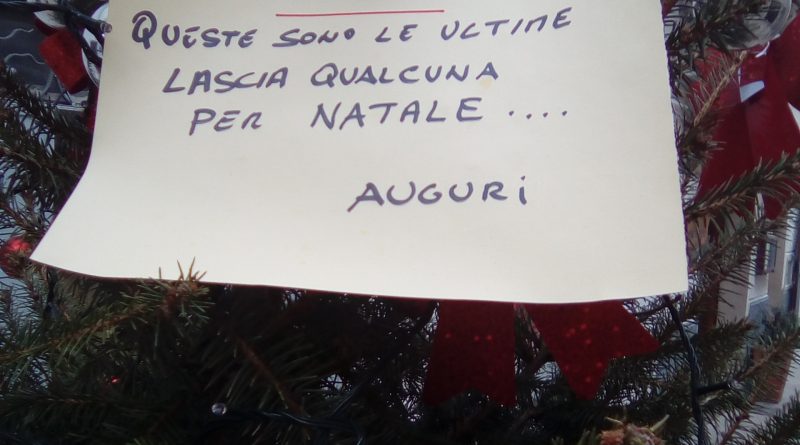 QUESTE SONO LE ULTIME
LASCIA QUALCUNA
PER NATALE ....
AUGURI